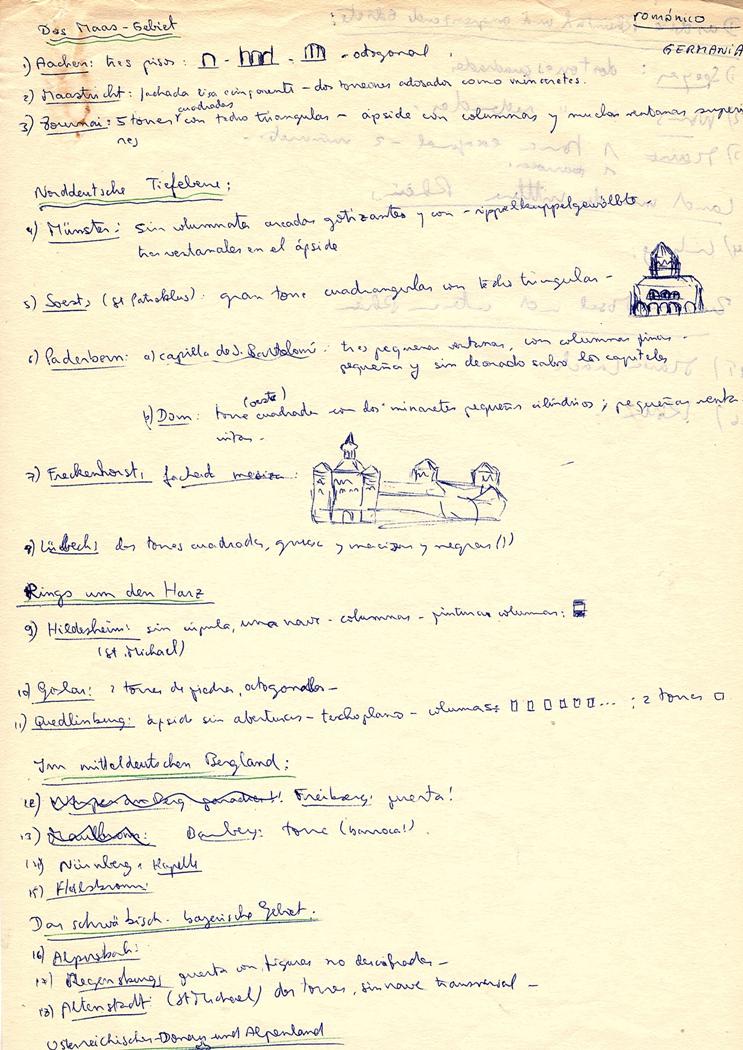 románico
GERMANIA
Das Maas-Gebiet
1) Aachen: tres pisos: - octogonal
2) Maastricht: fachada lisa - dos torreones adosados como minaretes.
3) Tournai: 5 torres cuadradas con techo triangular - ápside con columnas y muchas ventanas superio
res
Norddeutsche Tiefebene:
4) Münster: sin columnata arcadas gotizantes y con - rippelkuppelgewölbte
tres ventanales en el ápside
5) Soest, (St Patroklus): gran torre cuadrangular con techo triangular -
6) Paderborn: a) capilla de S. Bartolomé: tres pequeñas ventanas, con columnas finas -
pequeña y sin decorado salvo los capiteles
b) Dom: torre (oeste) cuadrada con dos minaretes pequeños cilíndricos; pequeñas venta
nitas -
7) Freckenhorst, fachada maciza:
8) Lübbecke, dos torres cuadradas, gruesas y macizas y negras (!)
Rings um den Harz
9) Hildesheim: sin cúpula, una nave - columnas - pinturas columnas:
(St Michael)
10) Goslar: 2 torres de piedra, octogonales -
11) Quedlinburg: ápside sin aberturas - techo plano - columnas: ... ; 2 torres
Im mitteldeutschen Bergland:
12) Freiberg: puerta!
13) Bamberg: torre (barroca!).
14) Nürnberg: Kapelle
15) Heilsbronn:
Das schwäbisch-bayerische Gebiet:
16) Alpirsbach:
17) Regensburg, puerta con figuras no descifradas -
18) Altenstadt: (St Michael) dos torres, sin nave transversal -
Österreichisches-Donau und Alpenland